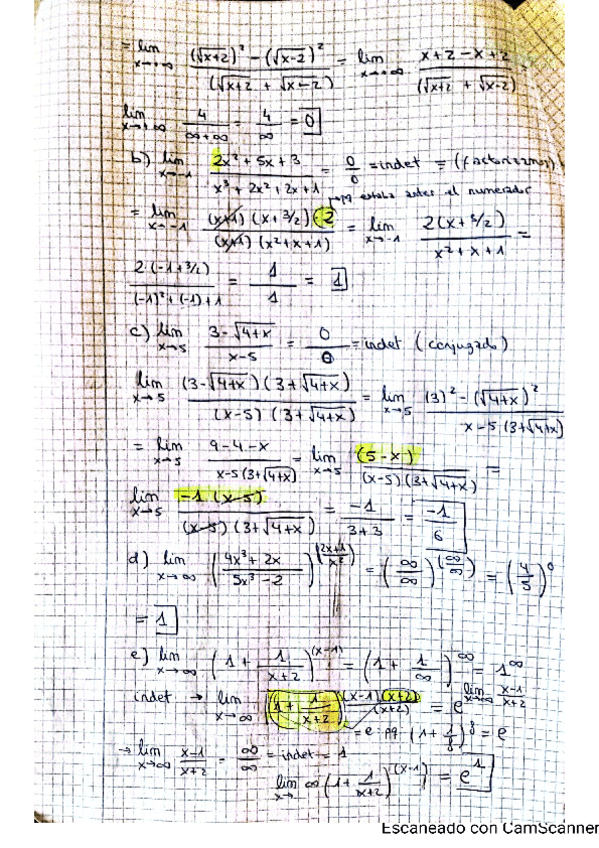 = lim x→+∞ ((√x+2)² − (√x−2)²) / (√x+2 + √x−2) = lim x→+∞ (x+2−x+2) / (√x+2 + √x−2)
lim x→+∞ 4/(∞+∞) = 4/∞ = 0
b) lim x→−1 (2x² + 5x + 3) / (x³ + 2x² + 2x + 1) = 0/0 = indet = (factorizamos)
→ pq estaba antes el numerador
= lim x→−1 ((x+1) (x + 3/2) · 2) / ((x+1) (x²+x+1)) = lim x→−1 2(x+3/2) / (x²+x+1) =
2(−1+3/2) / ((−1)²+(−1)+1) = 1/1 = 1
c) lim x→5 (3−√4+x) / (x−5) = 0/0 = indet (conjugado)
lim x→5 ((3−√4+x)(3+√4+x)) / ((x−5)(3+√4+x)) = lim x→5 ((3)² − (√4+x)²) / (x−5(3+√4+x))
= lim x→5 (9−4−x) / (x−5(3+√4+x)) = lim x→5 (5−x) / ((x−5)(3+√4+x)) =
lim x→5 −1(x−5) / ((x−5)(3+√4+x)) = −1/(3+3) = −1/6
d) lim x→∞ ((4x³+2x)/(5x³−2))^((2x+1)/x²) = (∞/∞)^(∞/∞) = (4/5)⁰
= 1
e) lim x→∞ (1 + 1/(x+2))^(x−1) = (1 + 1/∞)^∞ = 1^∞
indet → lim x→∞ (1 + 1/(x+2))^((x−1)(x+2)/(x+2)) = e^(lim x→∞ (x−1)/(x+2))
= e pq (1 + 1/f)^f = e
→ lim x→∞ (x−1)/(x+2) = ∞/∞ = indet = 1
lim x→∞ (1 + 1/(x+2))^(x−1) = e¹
Escaneado con CamScanner